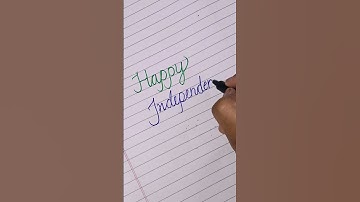 Happy
Independen